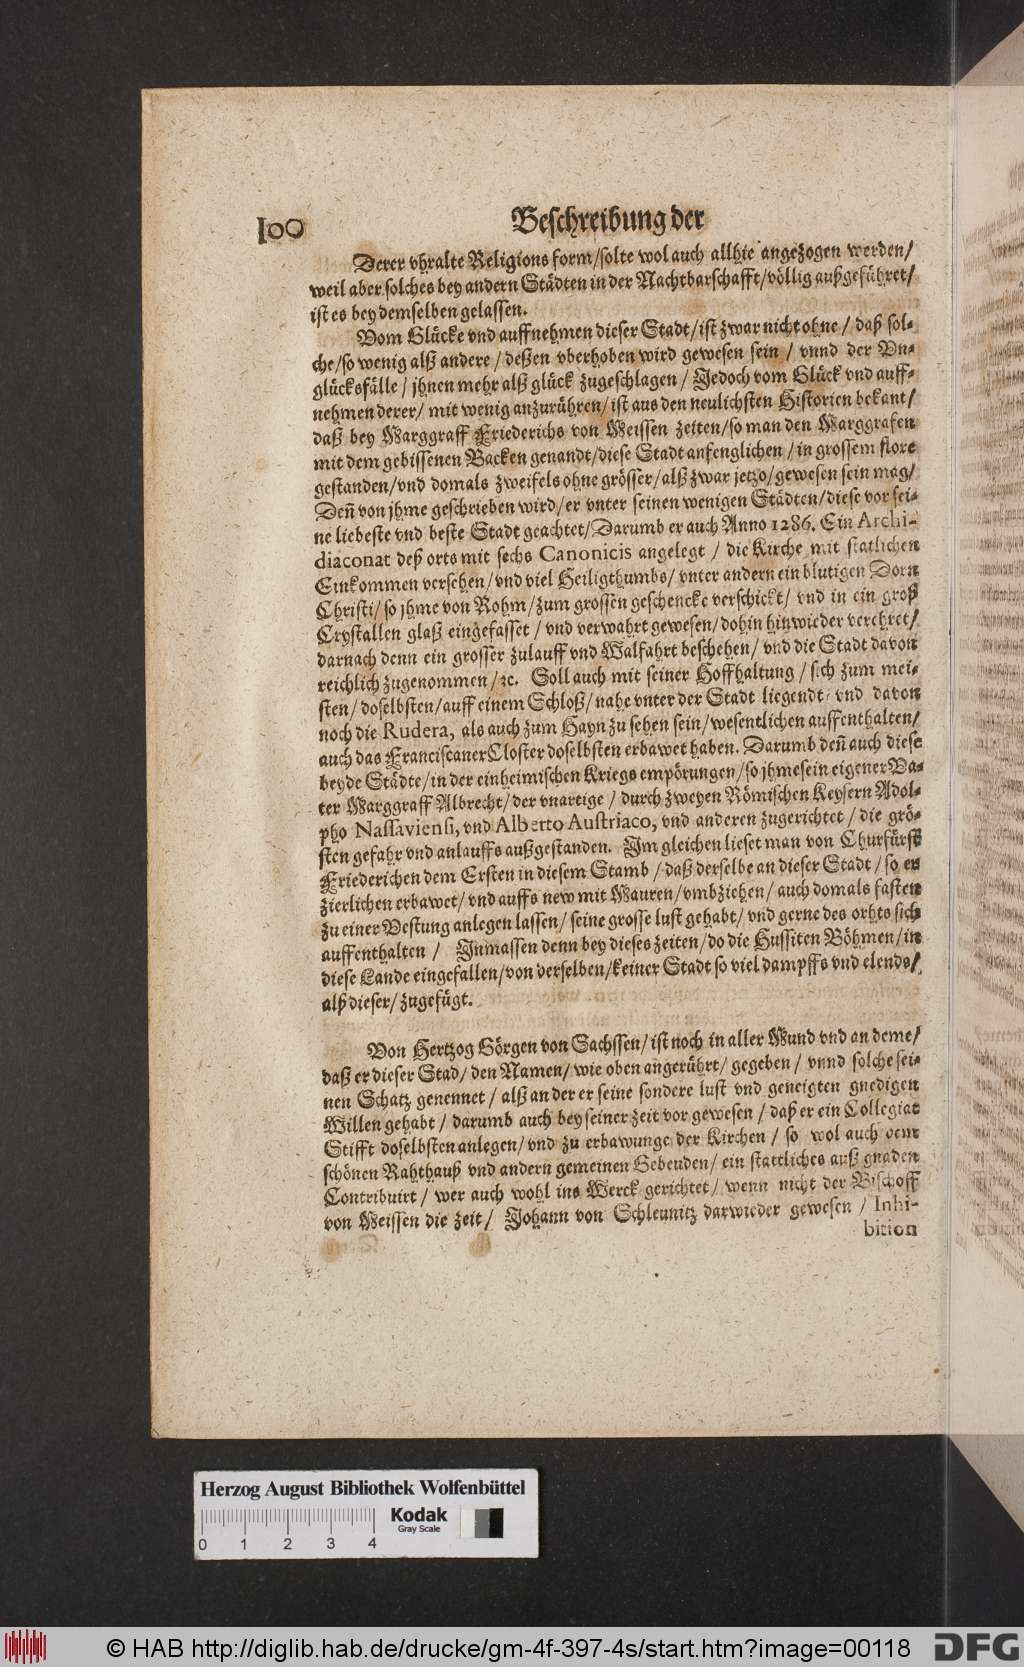 100
Beschreibung der
Derer vhralte Religions form/solte wol auch allhie angezogen werden/
weil aber solches bey andern Städten in der Nachtbarschafft/völlig außgeführet/
ist es bey demselben gelassen.
Vom Glücke vnd auffnehmen dieser Stadt/ist zwar nicht ohne/ daß sol-
che/so wenig alß andere/ deßen vberhoben wird gewesen sein/ vnnd der Vn-
glücksfälle/ jhnen mehr alß glück zugeschlagen/ Jedoch vom Glück vnd auff-
nehmen derer/ mit wenig anzurühren/ ist aus den neulichsten Historien bekant/
daß bey Marggraff Friederichs von Meissen zeiten/so man den Marggrafen
mit dem gebissenen Backen genandt/diese Stadt anfenglichen/in grossem flore
gestanden/vnd domals zweifels ohne grösser/alß zwar jetzo/gewesen sein mag/
Deñ von jhme geschrieben wird/er vnter seinen wenigen Städten/diese vor sei-
ne liebeste vnd beste Stadt geachtet/Darumb er auch Anno 1286. Ein Archi-
diaconat deß orts mit sechs Canonicis angelegt/ die Kirche mit statlichen
Einkommen versehen/vnd viel Heiligthumbs/ vnter andern ein blutigen Dorn
Christi/so jhme von Rohm/zum grossen geschencke verschickt/ vnd in ein groß
Crystallen glaß eingefasset/ vnd verwahrt gewesen/dohin hinwieder verehret/
darnach denn ein grosser zulauff vnd Walfahrt beschehen/ vnd die Stadt davon
reichlich zugenommen/ꝛc. Soll auch mit seiner Hoffhaltung/ sich zum mei-
sten/ doselbsten/auff einem Schloß/ nahe vnter der Stadt liegendt/ vnd davon
noch die Rudera, als auch zum Hayn zu sehen sein/wesentlichen auffenthalten/
auch das FranciscanerCloster doselbsten erbawet haben. Darumb deñ auch diese
beyde Städte/in der einheimischen Kriegs empörungen/so jhme sein eigener Va-
ter Marggraff Albrecht/der vnartige/ durch zweyen Römischen Keysern Adol-
pho Nassaviensi, vnd Alberto Austriaco, vnd anderen zugerichtet/ die grö-
sten gefahr vnd anlauffs außgestanden. Jm gleichen lieset man von Churfürst
Friederichen dem Ersten in diesem Stamb/ daß derselbe an dieser Stadt/ so er
zierlichen erbawet/ vnd auffs new mit Mauren/vmbziehen/ auch domals fasten
zu einer Vestung anlegen lassen/ seine grosse lust gehabt/ vnd gerne des orhts sich
auffenthalten/ Jnmassen denn bey dieses zeiten/do die Hussiten Böhmen/in
diese Lande eingefallen/von derselben/keiner Stadt so viel dampffs vnd elends/
alß dieser/ zugefügt.
Von Hertzog Görgen von Sachssen/ ist noch in aller Mund vnd an deme/
daß er dieser Stad/ den Namen/ wie oben angerührt/ gegeben/ vnnd solche sei-
nen Schatz genennet/ alß an der er seine sondere lust vnd geneigten gnedigen
Willen gehabt/ darumb auch bey seiner zeit vor gewesen/ daß er ein Collegiat
Stifft doselbsten anlegen/ vnd zu erbawunge der Kirchen/ so wol auch dem
schönen Rahthauß vnd andern gemeinen Gebeuden/ ein stattliches auß gnaden
Contribuirt/ wer auch wohl ins Werck gerichtet/ wenn nicht der Bischoff
von Meissen die zeit/ Johann von Schleunitz darwieder gewesen/ Inhi-
bition
Herzog August Bibliothek Wolfenbüttel
Kodak
Gray Scale
0 1 2 3 4
© HAB http://diglib.hab.de/drucke/gm-4f-397-4s/start.htm?image=00118
DFG